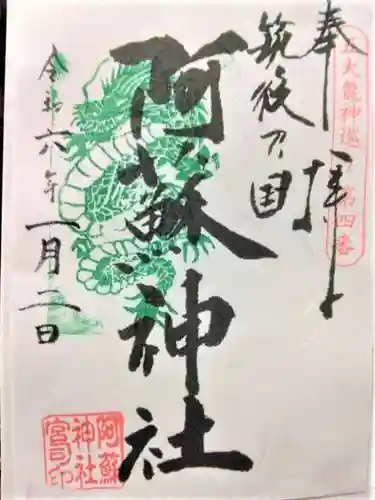 五大龍神巡り 第四番
奉拝
筑後乃国
阿蘇神社
令和六年一月二日
阿蘇
神社
宮司印